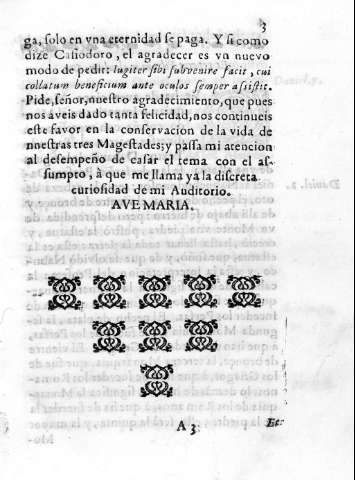 3
ga, solo en vna eternidad se paga. Y si como
dize Casiodoro, el agradecer es vn nuevo
modo de pedir: Iugiter sibi subvenire facit, cui
collatum beneficium ante oculos semper assistit.
Pide, señor, nuestro agradecimiento, que pues
nos aveis dado tanta felicidad, nos continueis
este favor en la conservacion de la vida de
nuestras tres Magestades; y passa mi atencion
al desempeño de casar el tema con el as-
sumpto, à que me llama ya la discreta
curiosidad de mi Auditorio.
AVE MARIA.
A 3 Et: